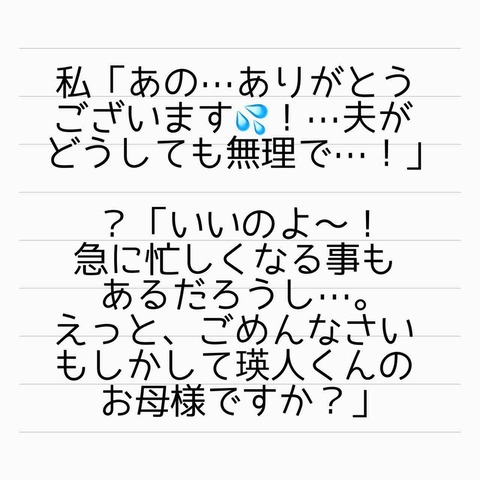 私「あの…ありがとう
ございます💦！…夫が
どうしても無理で…！」
？「いいのよ〜！
急に忙しくなる事も
あるだろうし…。
えっと、ごめんなさい
もしかして瑛人くんの
お母様ですか？」